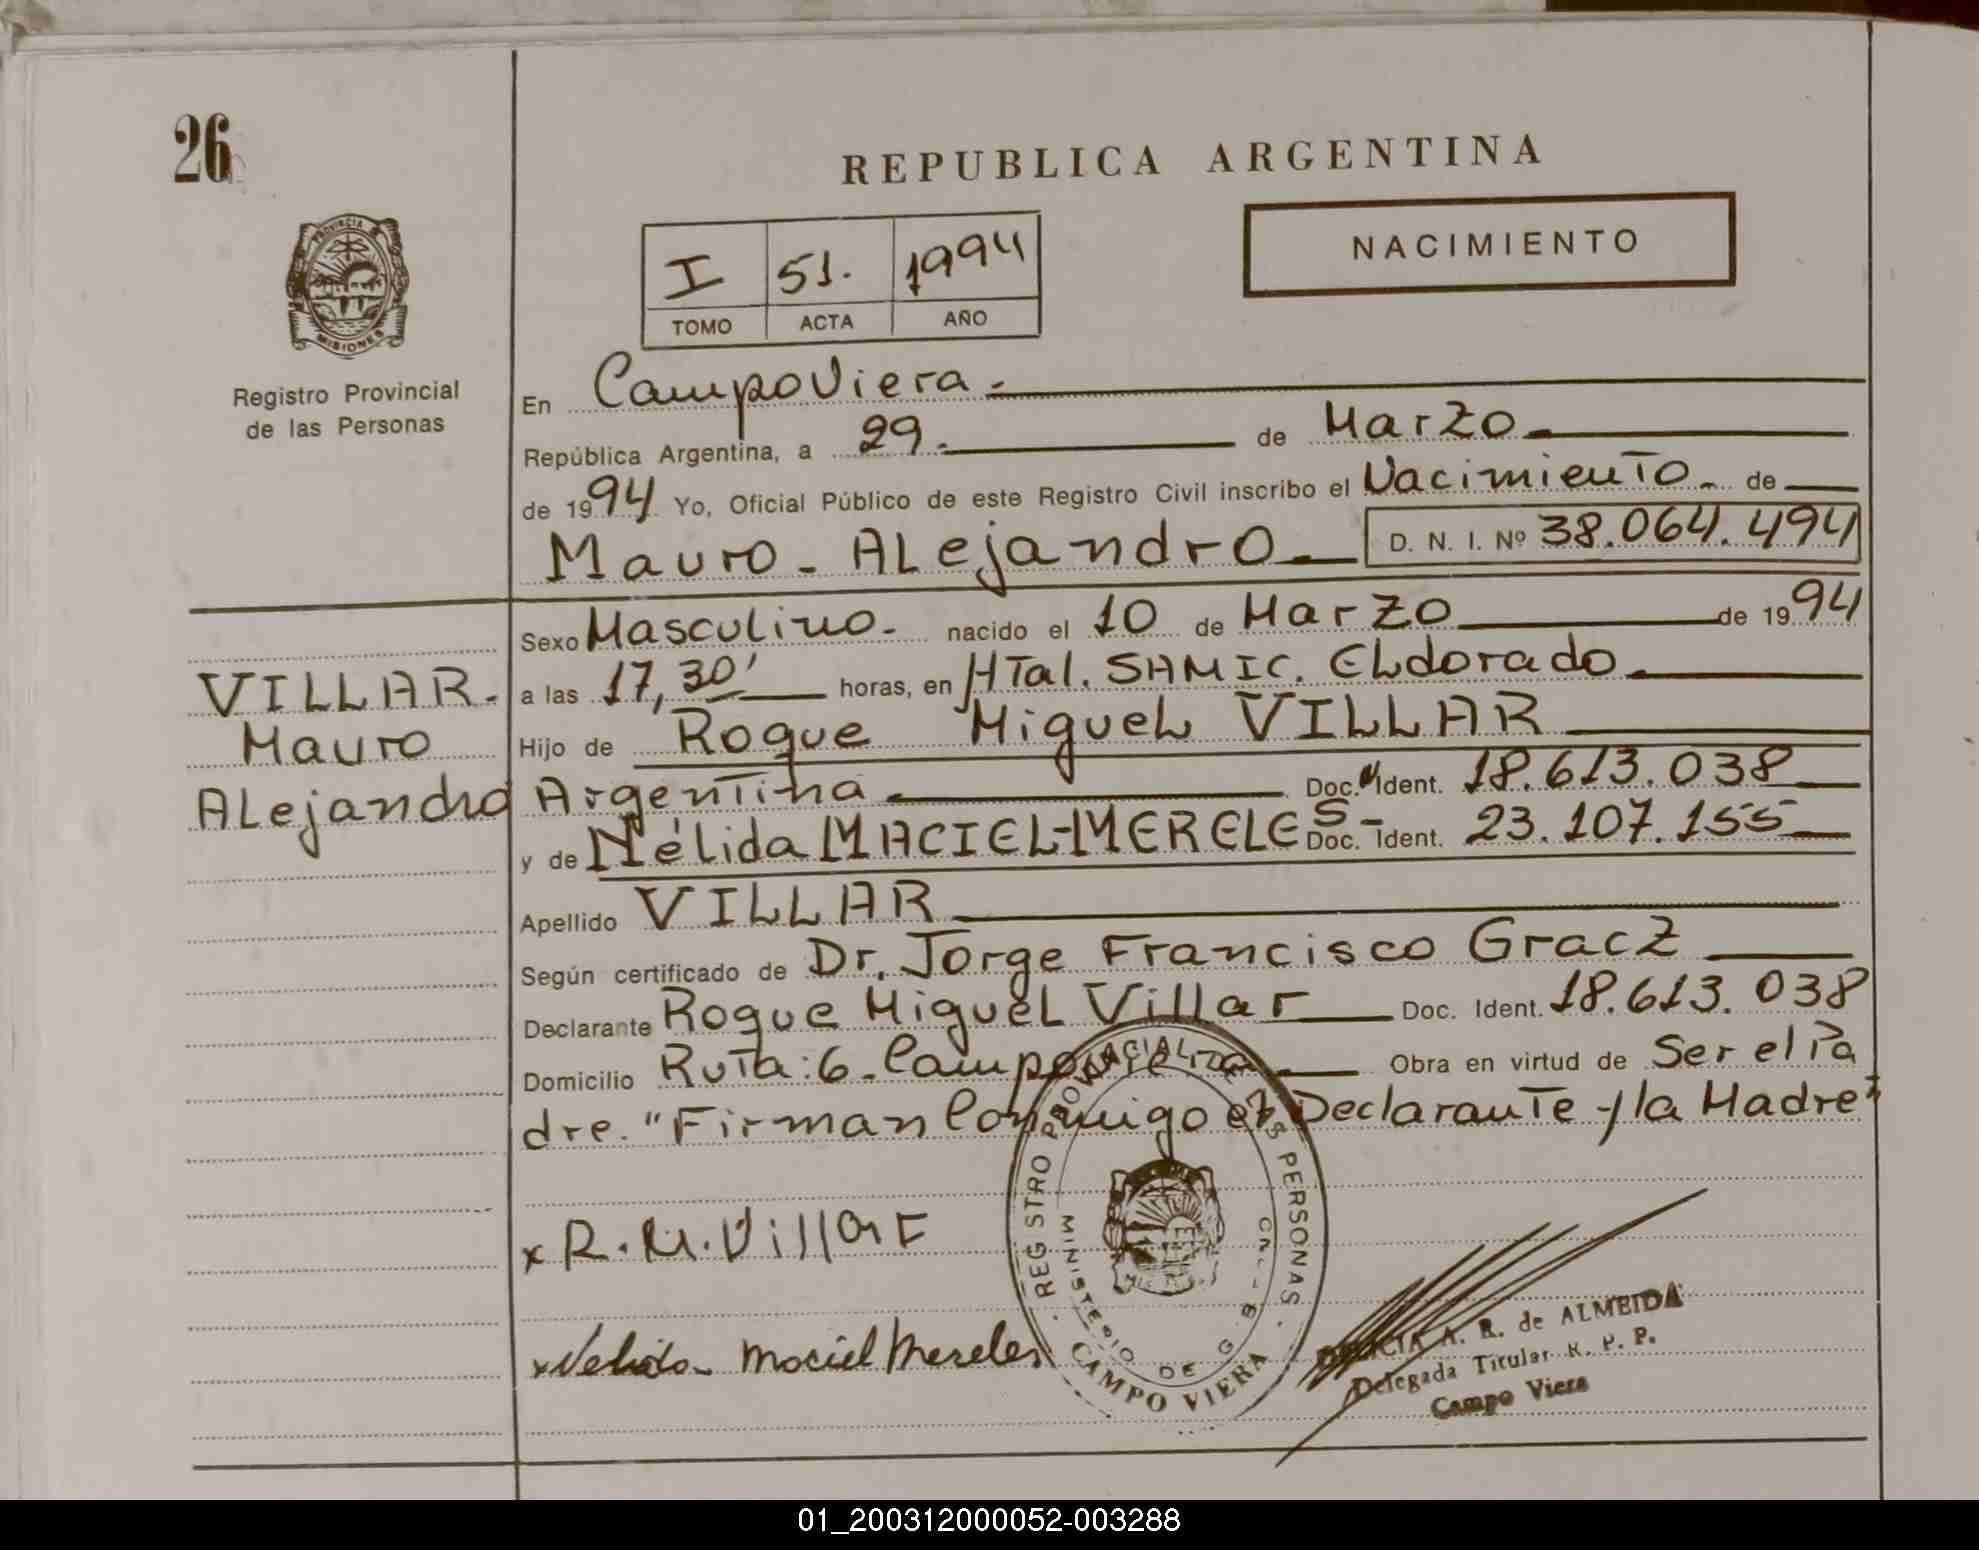 26
REPUBLICA ARGENTINA
NACIMIENTO
I 51. 1994
TOMO ACTA AÑO
PROVINCIA
MISIONES
Registro Provincial
de las Personas
En Campo Viera.-
República Argentina, a 29.- de Marzo.-
de 1994 Yo, Oficial Público de este Registro Civil inscribo el Nacimiento.- de
Mauro - ALejandro.- D. N. I. Nº 38.064.494
VILLAR.-
Mauro
ALejandro
Sexo Masculino.- nacido el 10 de Marzo de 1994
a las 17,30' horas, en HTal. SAMIC. ELdorado.-
Hijo de Roque MigueL VILLAR
Argentina.- Doc. Ident. 18.613.038
y de Nélida MACIEL-MERELES- Doc. Ident. 23.107.155
Apellido VILLAR
Según certificado de Dr. Jorge Francisco Gracz
Declarante Roque MigueL Villar Doc. Ident. 18.613.038
Domicilio RuTa: 6.- Campo Viera Obra en virtud de Ser el Pa
dre. "Firman Conmigo el Declarante y la Madre"
x R.M.Villar
x Nelida Maciel Mereles
REGISTRO PROVINCIAL DE LAS PERSONAS
MINISTERIO DE G.
CAMPO VIERA
A. R. de ALMEIDA
Delegada Titular R. P. P.
Campo Viera
01_200312000052-003288